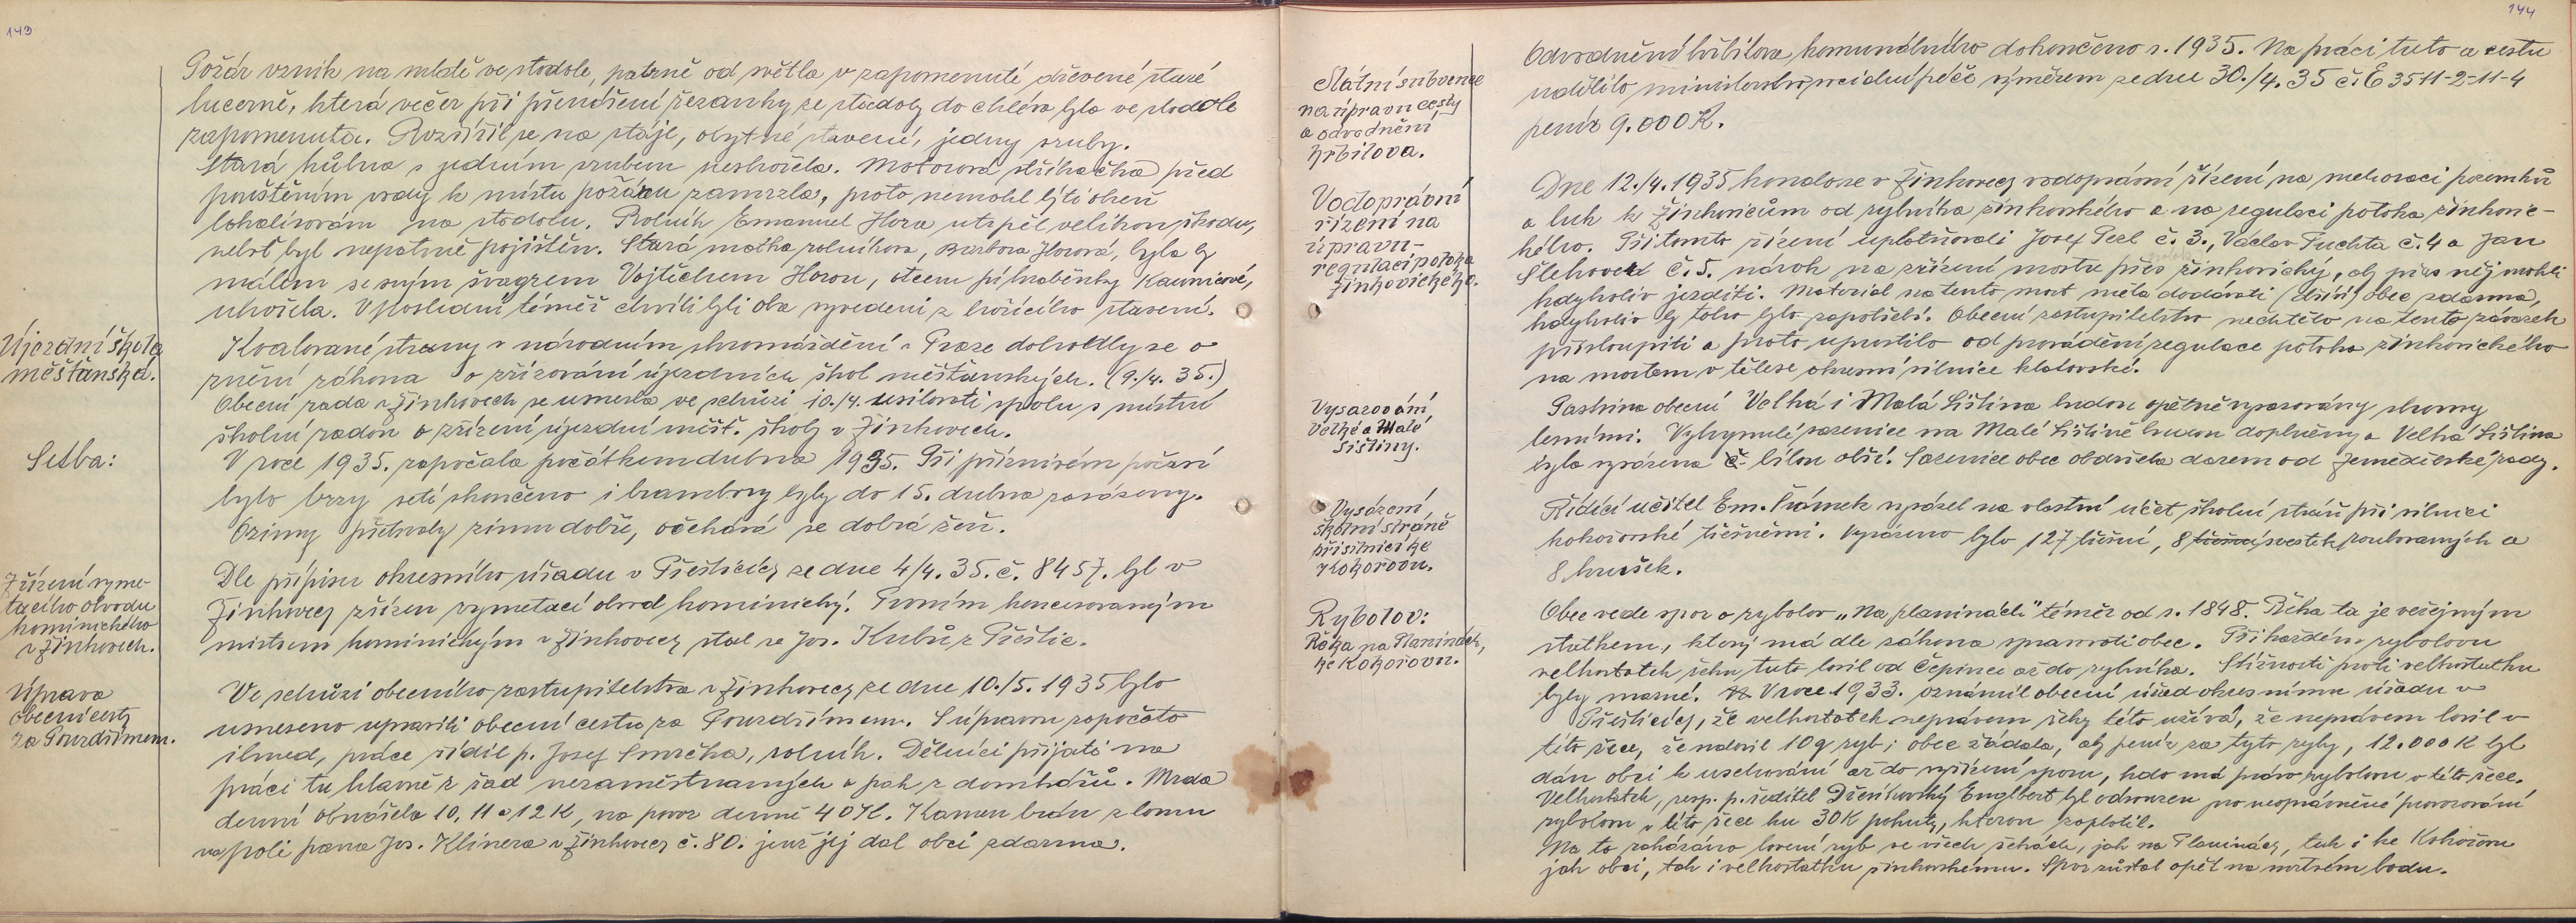 143
Požár vznik na mlátě ve stodole, patrně od světla v zapomenuté dřevené staré
lucerně, která večer při přenášení řezanky ze stodoly do chléva byla ve stodole
zapomenuta. Rozšířil se na stáje, obytné stavení, jedny sruby.
Stará kůlna s jedním srubem neshořela. Motorová stříkačka před
puštěním vody k místu požáru zamrzla, proto nemohl býti oheň
lokalisován na stodolu. Rolník Emanuel Hora utrpěl velikou škodu,
neboť byl nepatrně pojištěn. Stará matka rolníkova, Barbora Horová, byla by
málem se svým švagrem Vojtěchem Horou, otcem při hraběnky Kaunicové,
uhořela. V poslední téměř chvíli byli oba vyvedeni z hořícího stavení.
Újezdní škola
měšťanská.
Koalované strany v národním shromáždění v Praze dohodly se o
znění zákona o zřizování újezdních škol měšťanských. (9./4. 35.)
Obecní rada v Žinkovech se usnesla ve schůzi 10./4. usilovati spolu s místní
školní radou o zřízení újezdní měšť. školy v Žinkovech.
Setba:
V roce 1935. započala počátkem dubna 1935. Při příznivém počasí
bylo brzy setí skončeno i brambory byly do 15. dubna zasázeny.
Ozimy přetrvaly zimu dobře, očekává se dobrá žeň.
Zřízení vyme-
tacího obvodu
kominického
v Žinkovech.
Dle přípisu okresního úřadu v Přešticích ze dne 4/4. 35. č. 8457. byl v
Žinkovech zřízen vymetací obvod kominický. Prvním koncesovaným
mistrem kominickým v Žinkovech stal se Jos. Kubů z Přeštic.
Úprava
obecní cesty
za Pouzdřímem.
Ve schůzi obecního zastupitelstva v Žinkovech ze dne 10./5. 1935 bylo
usneseno upraviti obecní cestu za Pouzdřímem. S úpravou započato
ihned, práce řídil p. Josef Smrčka, rolník. Dělníci přijati na
práci tu hlavně z řad nezaměstnaných a pak z domkářů. Mzda
denní obnášela 10, 11 a 12 K, na povoz denně 40 K. Kámen brán z lomu
na poli pana Jos. Klinera v Žinkovech č. 80. jenž jej dal obci zdarma.
144
Státní subvence
na úpravu cesty
a odvodnění
hřbitova.
Odvodnění hřbitova komunálního dokončeno r. 1935. Na práci tuto a cestu
udělilo ministerstvo sociální péče výměrem ze dne 30./4. 35 č. E 3511-2-11-4
peníz 9.000 K.
Vodoprávní
řízení na
úpravu-
regulaci potoka
žinkovického.
Dne 12./4. 1935 konalo se v Žinkovech vodoprávní řízení na melioraci pozemků
a luk k Žinkovicům od rybníka žinkovského a na regulaci potoka žinkovic-
kého. Při tomto řízení uplatňovali Josef Pecl č. 3., Václav Tuchta č. 4 a Jan
Šlehover č. 5. nárok na zřízení mostu přes potok žinkovický, aby přes něj mohli
kdykoliv jezditi. Materiál na tento most měla dodávati (dříví) obec zdarma,
kdykoliv by toho bylo zapotřebí. Obecní zastupitelstvo nechtělo na tento závazek
přistoupiti a proto upustilo od provádění regulace potoka žinkovického
na mostem v tělese okresní silnice klatovské.
Vysazování
Velké a Malé
Lištiny.
Pastvina obecní Velká i Malá Liština budou opětně vysazovány stromy
lesními. Vyhynulé sazenice na Malé Lištině budou doplněny a Velká Liština
byla vysázena č. bílou olší. Sazenice obec obdržela darem od zemědělské rady.
Vysázení
školní stráně
při silnici ke
Kokořovu.
Řídící učitel Em. Frámek vysázel na vlastní účet školní stráň při silnici
kokořovské třešněmi. Vysázeno bylo 127 třešní, 8 třešní švestek roubovaných a
8 hrušek.
Rybolov:
Řeka na Planinách,
ke Kokořovu.
Obec vede spor o rybolov „Na planinách“ téměř od r. 1848. Řeka ta je veřejným
statkem, který má dle zákona spravovati obec. Při každém rybolovu
velkostatek řeku tuto lovil od Čepince až do rybníka. Stížnosti proti velkostatku
byly marné. V roce 1933. oznámil obecní úřad okresnímu úřadu v
Přešticích, že velkostatek neprávem řeky této užívá, že neprávem lovil v
této řece, že nalovil 10 q ryb; obec žádala, aby peníz za tyto ryby, 12.000 K byl
dán obci k uschování až do vyřízení sporu, kdo má právo rybolovu v této řece.
Velkostatek, resp. p. ředitel Dřenkovský Englbert byl odsouzen pro neoprávněné provozování
rybolovu v této řece ku 30 K pokuty, kterou zaplatil.
Na to zakázáno lovení ryb ve všech řekách, jak na Planinách, tak i ke Kokořovu
jak obci, tak i velkostatku žinkovskému. Spor zůstal opět na mrtvém bodu.